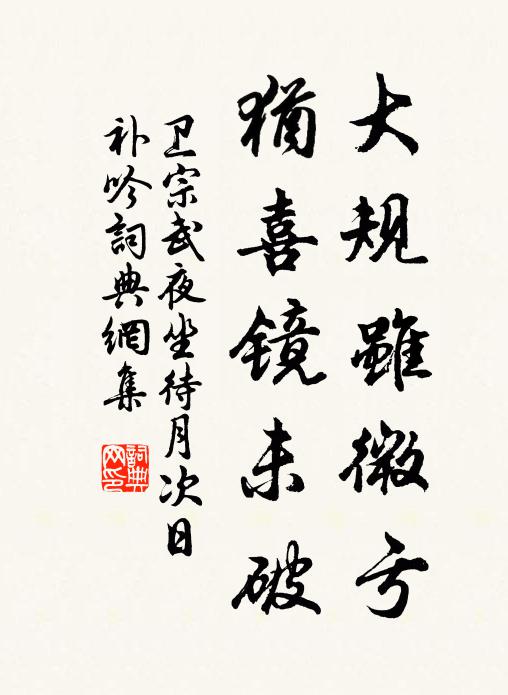 大规雖微亏
猶喜镜未破
卫宗武夜坐待月次日
补吟詞典網集
詞典
网印